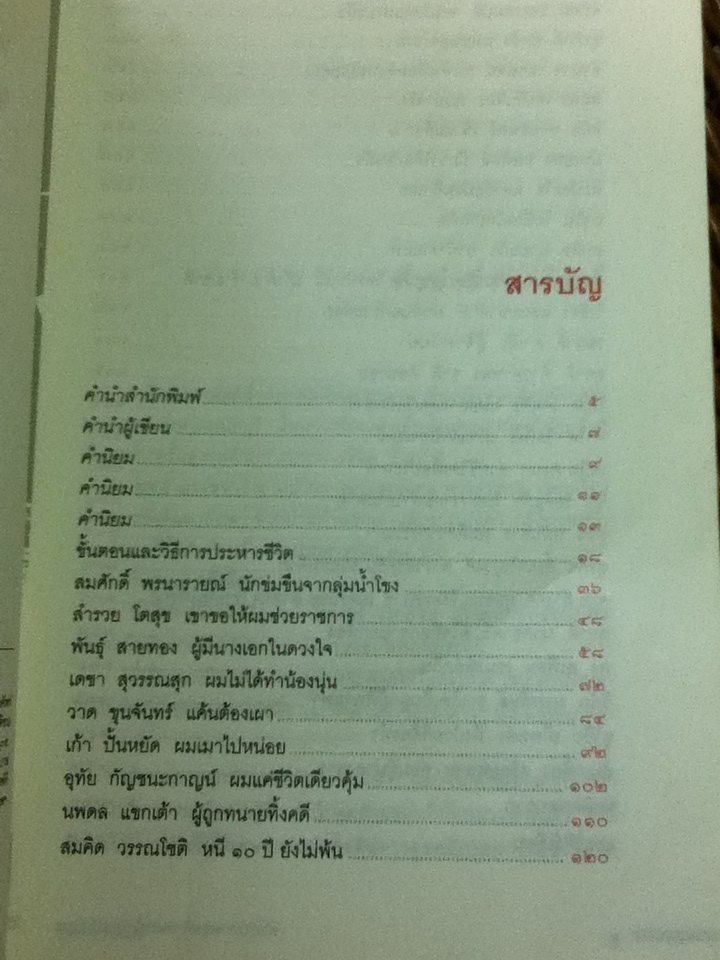 สารบัญ
คำนำสำนักพิมพ์ ๕
คำนำผู้เขียน ๗
คำนิยม ๙
คำนิยม ๑๑
คำนิยม ๑๓
ขั้นตอนและวิธีการประหารชีวิต ๑๘
สมศักดิ์ พรนารายณ์ นักข่มขืนจากลุ่มน้ำโขง ๓๖
สำรวย โตสุข เขาขอให้ผมช่วยราชการ ๔๘
พันธุ์ สายทอง ผู้มีนางเอกในดวงใจ ๕๘
เดชา สุวรรณสุก ผมไม่ได้ทำน้องนุ่น ๗๒
วาด ขุนจันทร์ แค้นต้องเผา ๘๔
เก้า ปั้นหยัด ผมเมาไปหน่อย ๙๒
อุทัย กัญชนะกาญน์ ผมแค่ชีวิตเดียวคุ้ม ๑๐๒
นพดล แขกเต้า ผู้ถูกทนายทิ้งคดี ๑๑๐
สมคิด วรรณโชติ หนี ๑๐ ปี ยังไม่พ้น ๑๒๐